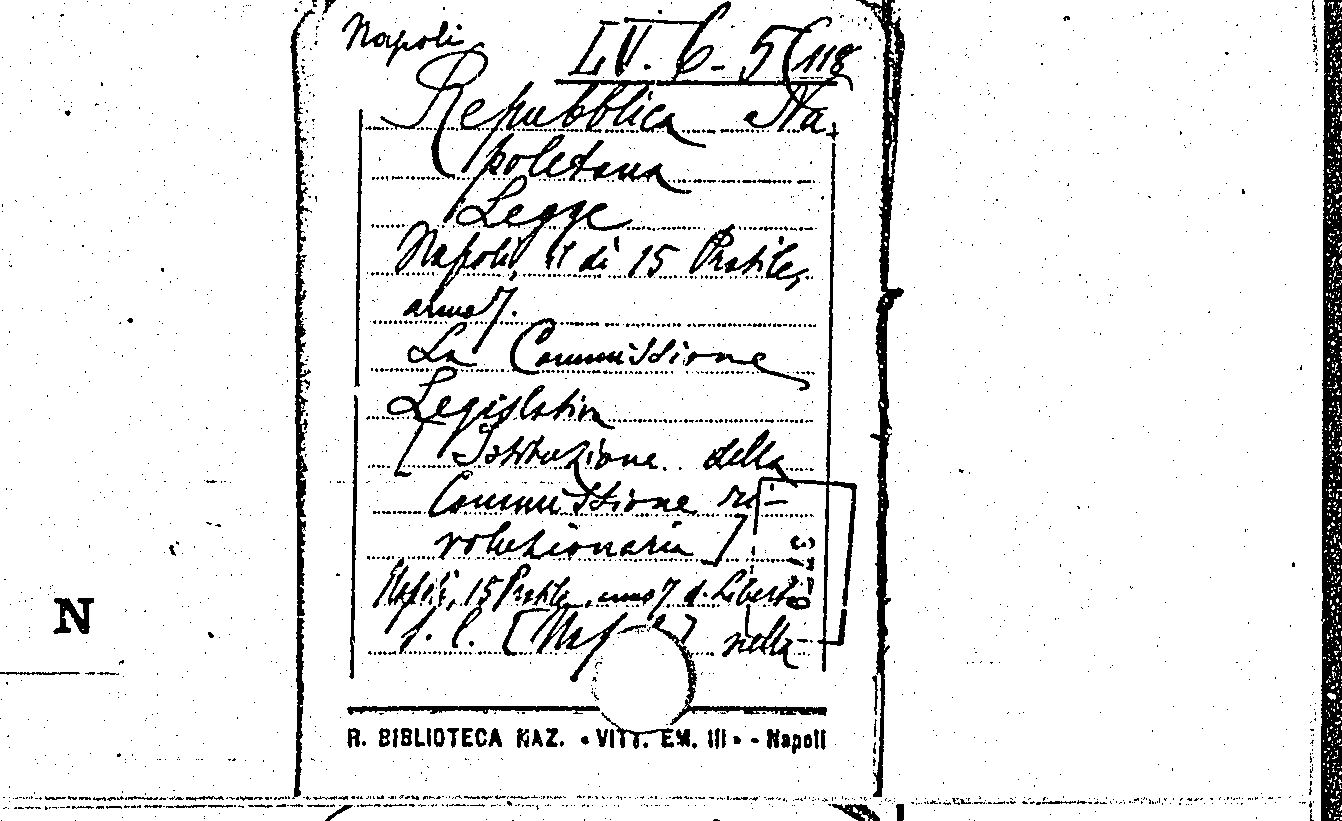 Napoli
LV. 6- 5(118
Repubblica Na-
poletana
Legge
Napoli, li di 15 Pratile,
anno 7.
La Commissione
Legislativa
[Istituzione della
Commissione ri-
voluzionaria]
Napoli, 15 Pratile, anno 7 d. Libert.
s. l. [Nap ] nella
37-9
N
R. BIBLIOTECA NAZ. « VITT. EM. III » - Napoli